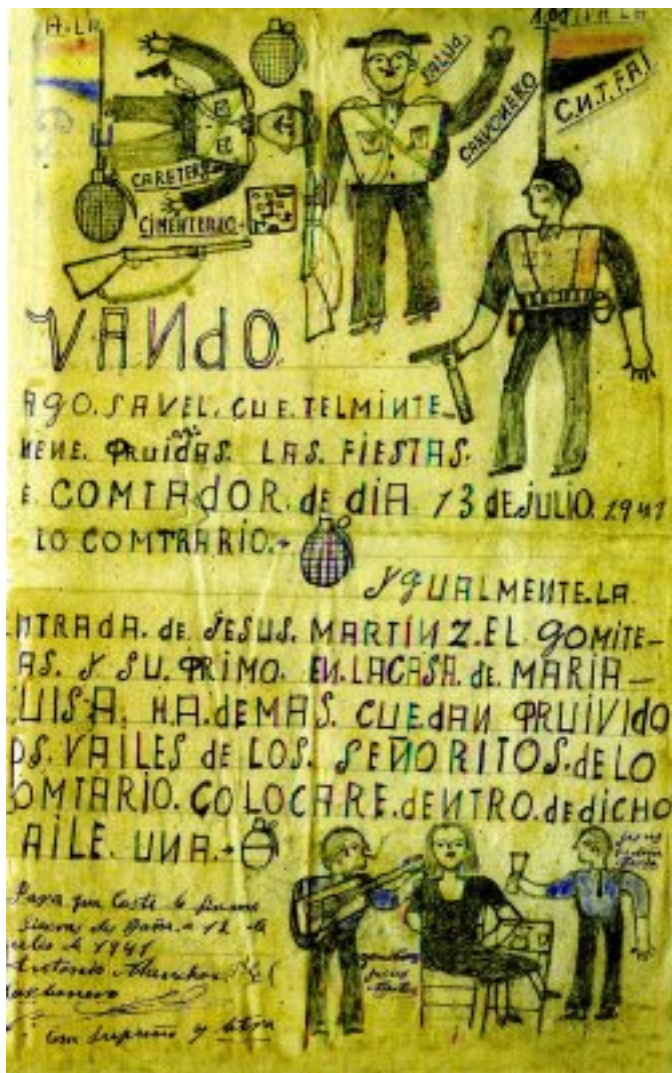 SALUD
CARVONERO
C.N.T.FAI
CARETER
CIMENTERIO
VANdO
AGO. SAVEL. CUE. TELMINTE_
NENE. PRUIDAS. LAS. FIESTAS.
E. COMTADOR. de dIA. 13 DE JULIO. 1941
LO COMTRARIO.-
YGUALMENTE.LA
NTRAdA. de. JESUS. MARTINZ. EL. GOMITE-
AS. Y SU. PRIMO. EN. LACASA. de. MARIA-
UISA. HA.DEMAS. CUEDAN PRUIVIDO
OS. VAILES de LOS. SEÑORITOS. dE LO
OMTARIO. COLOCARE. dENTRO. de dICHO
AILE. UNA.-
Para que Coste lo firmo
Sierra de 12 de
1941
Antonio
y